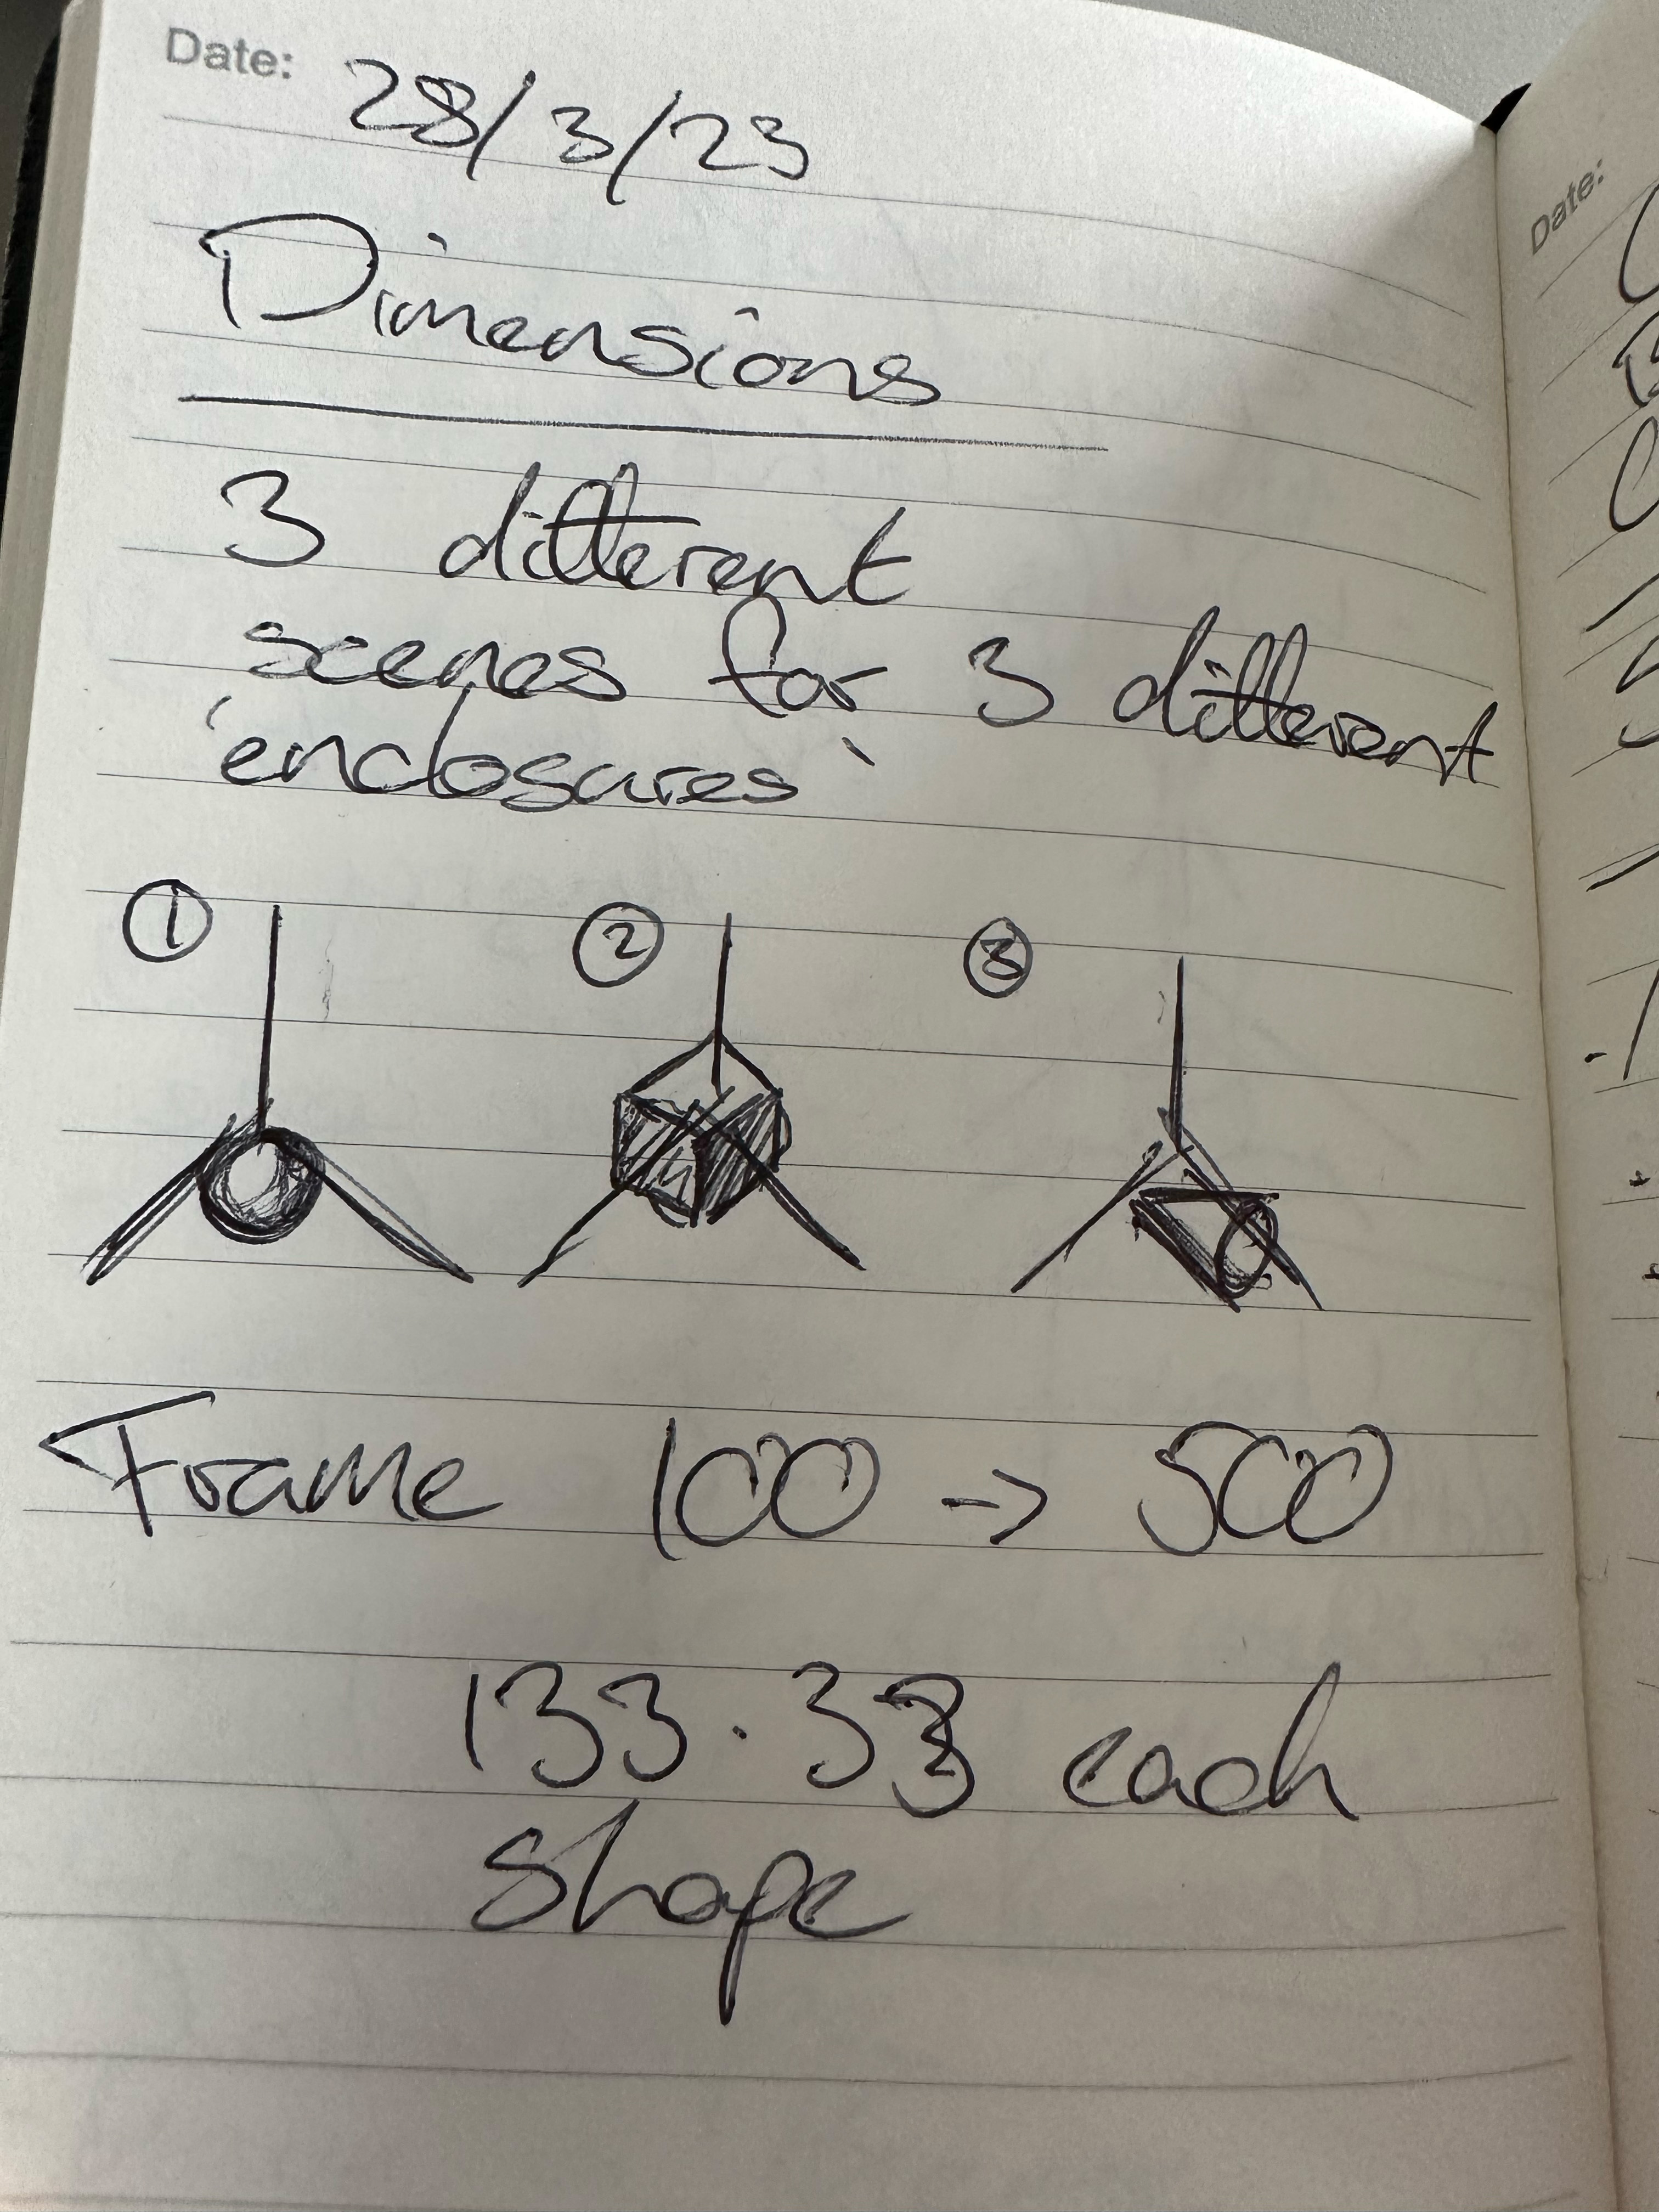 Date: 28/3/23
Dimensions
3 different
scenes for 3 different
'enclosures'
① ② ③
Frame 100 -> 500
133.33 each
shape
Date: